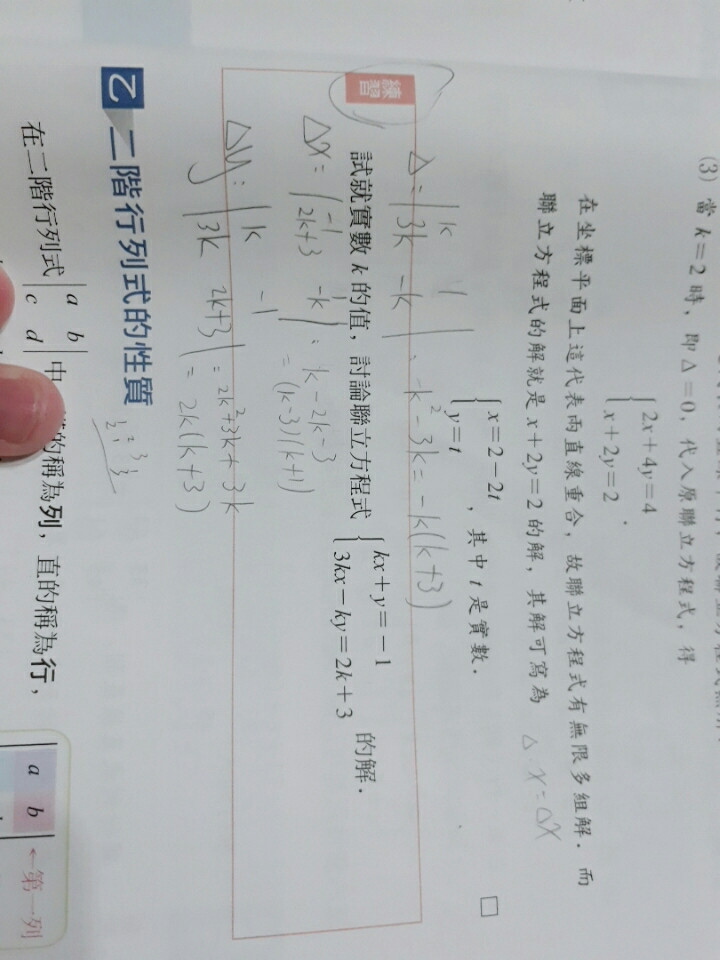 (3) 當 k=2 時，即 Δ=0，代入原聯立方程式，得
{ 2x+4y=4
x+2y=2 .
在坐標平面上這代表兩直線重合，故聯立方程式有無限多組解．而
聯立方程式的解就是 x+2y=2 的解，其解可寫為
Δx=Δx
{ x=2-2t
y=t ，其中 t 是實數．
□
Δ=|k 1
3k -k|=-k²-3k=-k(k+3)
練習
試就實數 k 的值，討論聯立方程式 { kx+y=-1
3kx-ky=2k+3 的解．
Δx=|-1 1
2k+3 -k|=k-2k-3
=(k-3)(k+1)
Δy=|k -1
3k 2k+3|=2k²+3k+3k
=2k(k+3)
乙 二階行列式的性質
在二階行列式 |a b
c d| 中
的稱為列，直的稱為行，
a b ←第一列